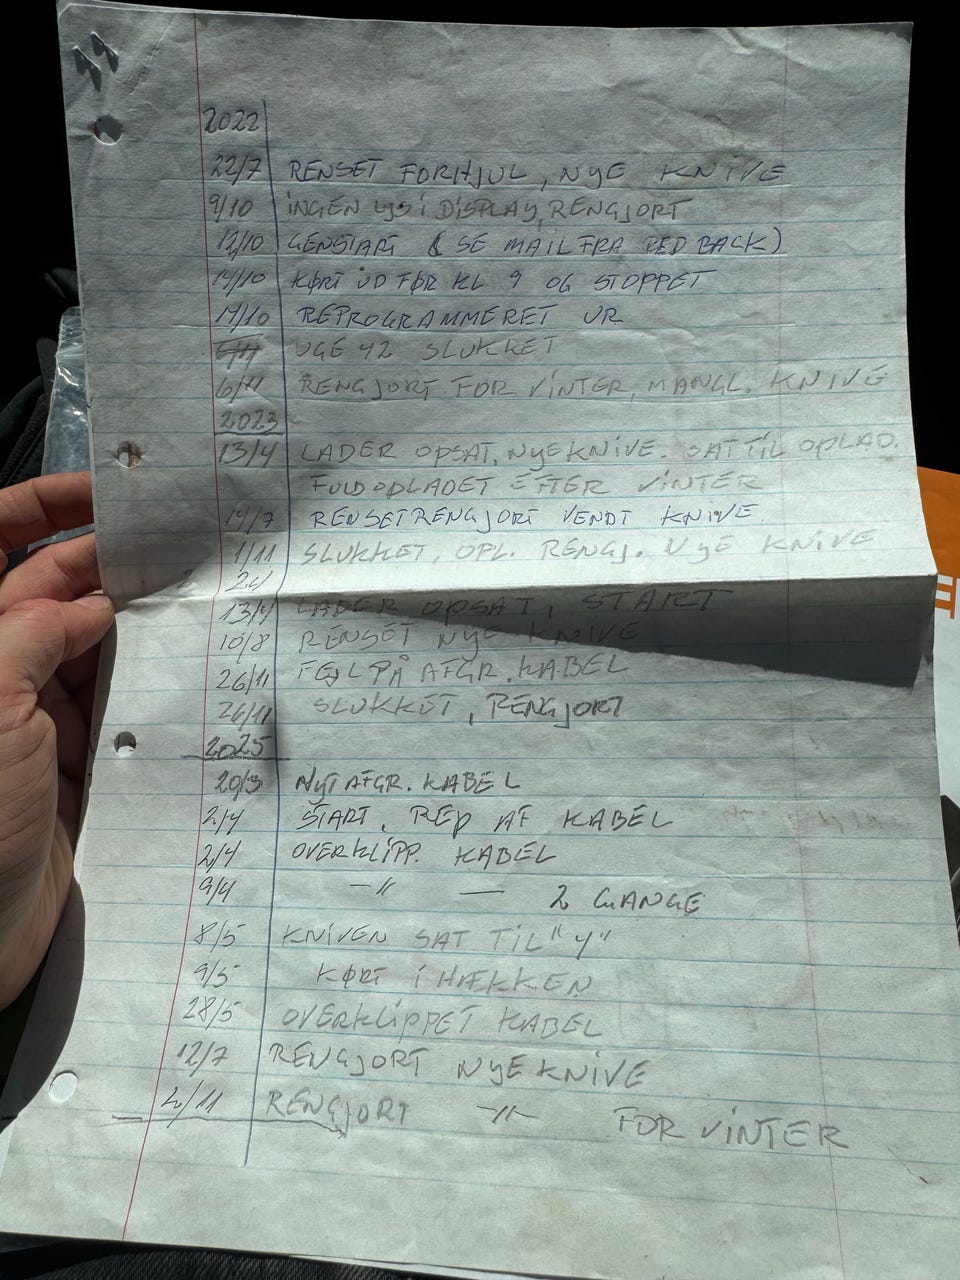 2022
22/7 RENSET FORHJUL, NYE KNIVE
9/10 INGEN LYS I DISPLAY, RENGJORT
12/10 GENSTART (SE MAIL FRA REDBACK)
14/10 KØRT UD FØR KL 9 OG STOPPET
17/10 REPROGRAMMERET UR
UGE 42 SLUKKET
6/11 RENGJORT FOR VINTER, MANGL. KNIVE
2023
13/4 LADER OPSAT, NYE KNIVE. SAT TIL OPLAD.
FULD OPLADET EFTER VINTER
14/7 RENSET RENGJORT VENDT KNIVE
1/11 SLUKKET, OPL. RENGJ. NYE KNIVE
24
13/4 LADER OPSAT, START
10/8 RENSET NYE KNIVE
26/11 FEJL PÅ AFGR. KABEL
26/11 SLUKKET, RENGJORT
2025
20/3 NYT AFGR. KABEL
2/4 START, REP AF KABEL
2/4 OVERKLIPP. KABEL
9/4 -"- — 2 GANGE
8/5 KNIVEN SAT TIL "4"
9/5 KØRT I HÆKKEN
28/5 OVERKLIPPET KABEL
12/7 RENGJORT NYE KNIVE
2/11 RENGJORT -"- FOR VINTER